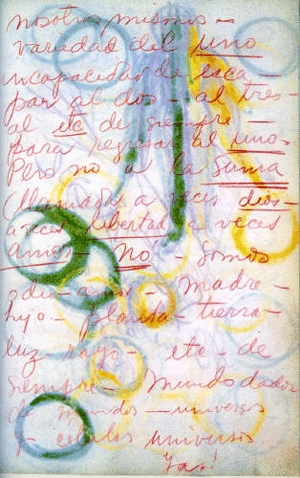 nosotros mismos –
variedad del uno
incapacidad de esca –
par al dos – al tres –
al etc de siempre –
para regresar al uno.
Pero no a la suma
(llamada a veces dios –
a veces libertad a veces
amor – No – somos
odio – amor – madre –
hijo – planta – tierra –
luz – rayo – etc – de
siempre – mundo dador
de mundos – universos
y celulas universos
Ya!